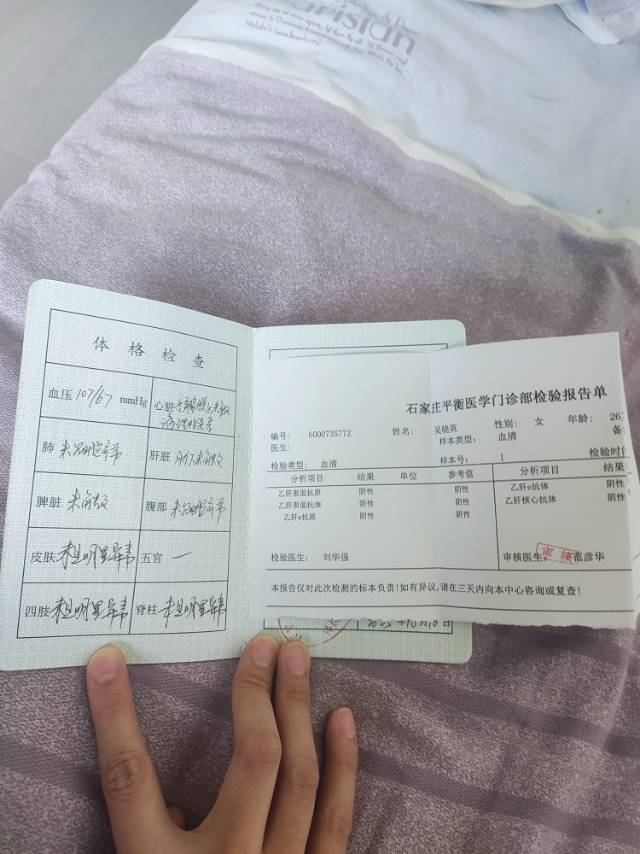 Parisian
体格检查
血压 107/67 mmHg
心脏
肺 未见明显异常
肝脏 肋下未触及
脾脏 未触及
腹部 未见明显异常
皮肤 未见明显异常
五官 一
四肢 未见明显异常
脊柱 未见明显异常
石家庄平衡医学门诊部检验报告单
编号: 6000735772 姓名: 吴晓英 性别: 女 年龄: 26
医生: 样本类型: 血清 备
检验类型: 血清 样本号: 1 检验时
分析项目 结果 单位 参考值 分析项目 结果
乙肝表面抗原 阴性 阴性 乙肝e抗体 阴性
乙肝表面抗体 阴性 阴性 乙肝核心抗体 阴性
乙肝e抗原 阴性 阴性
检验医生: 刘华强 审核医生: 范彦华
审核
本报告仅对此次检测的标本负责!如有异议,请在三天内向本中心咨询或复查!